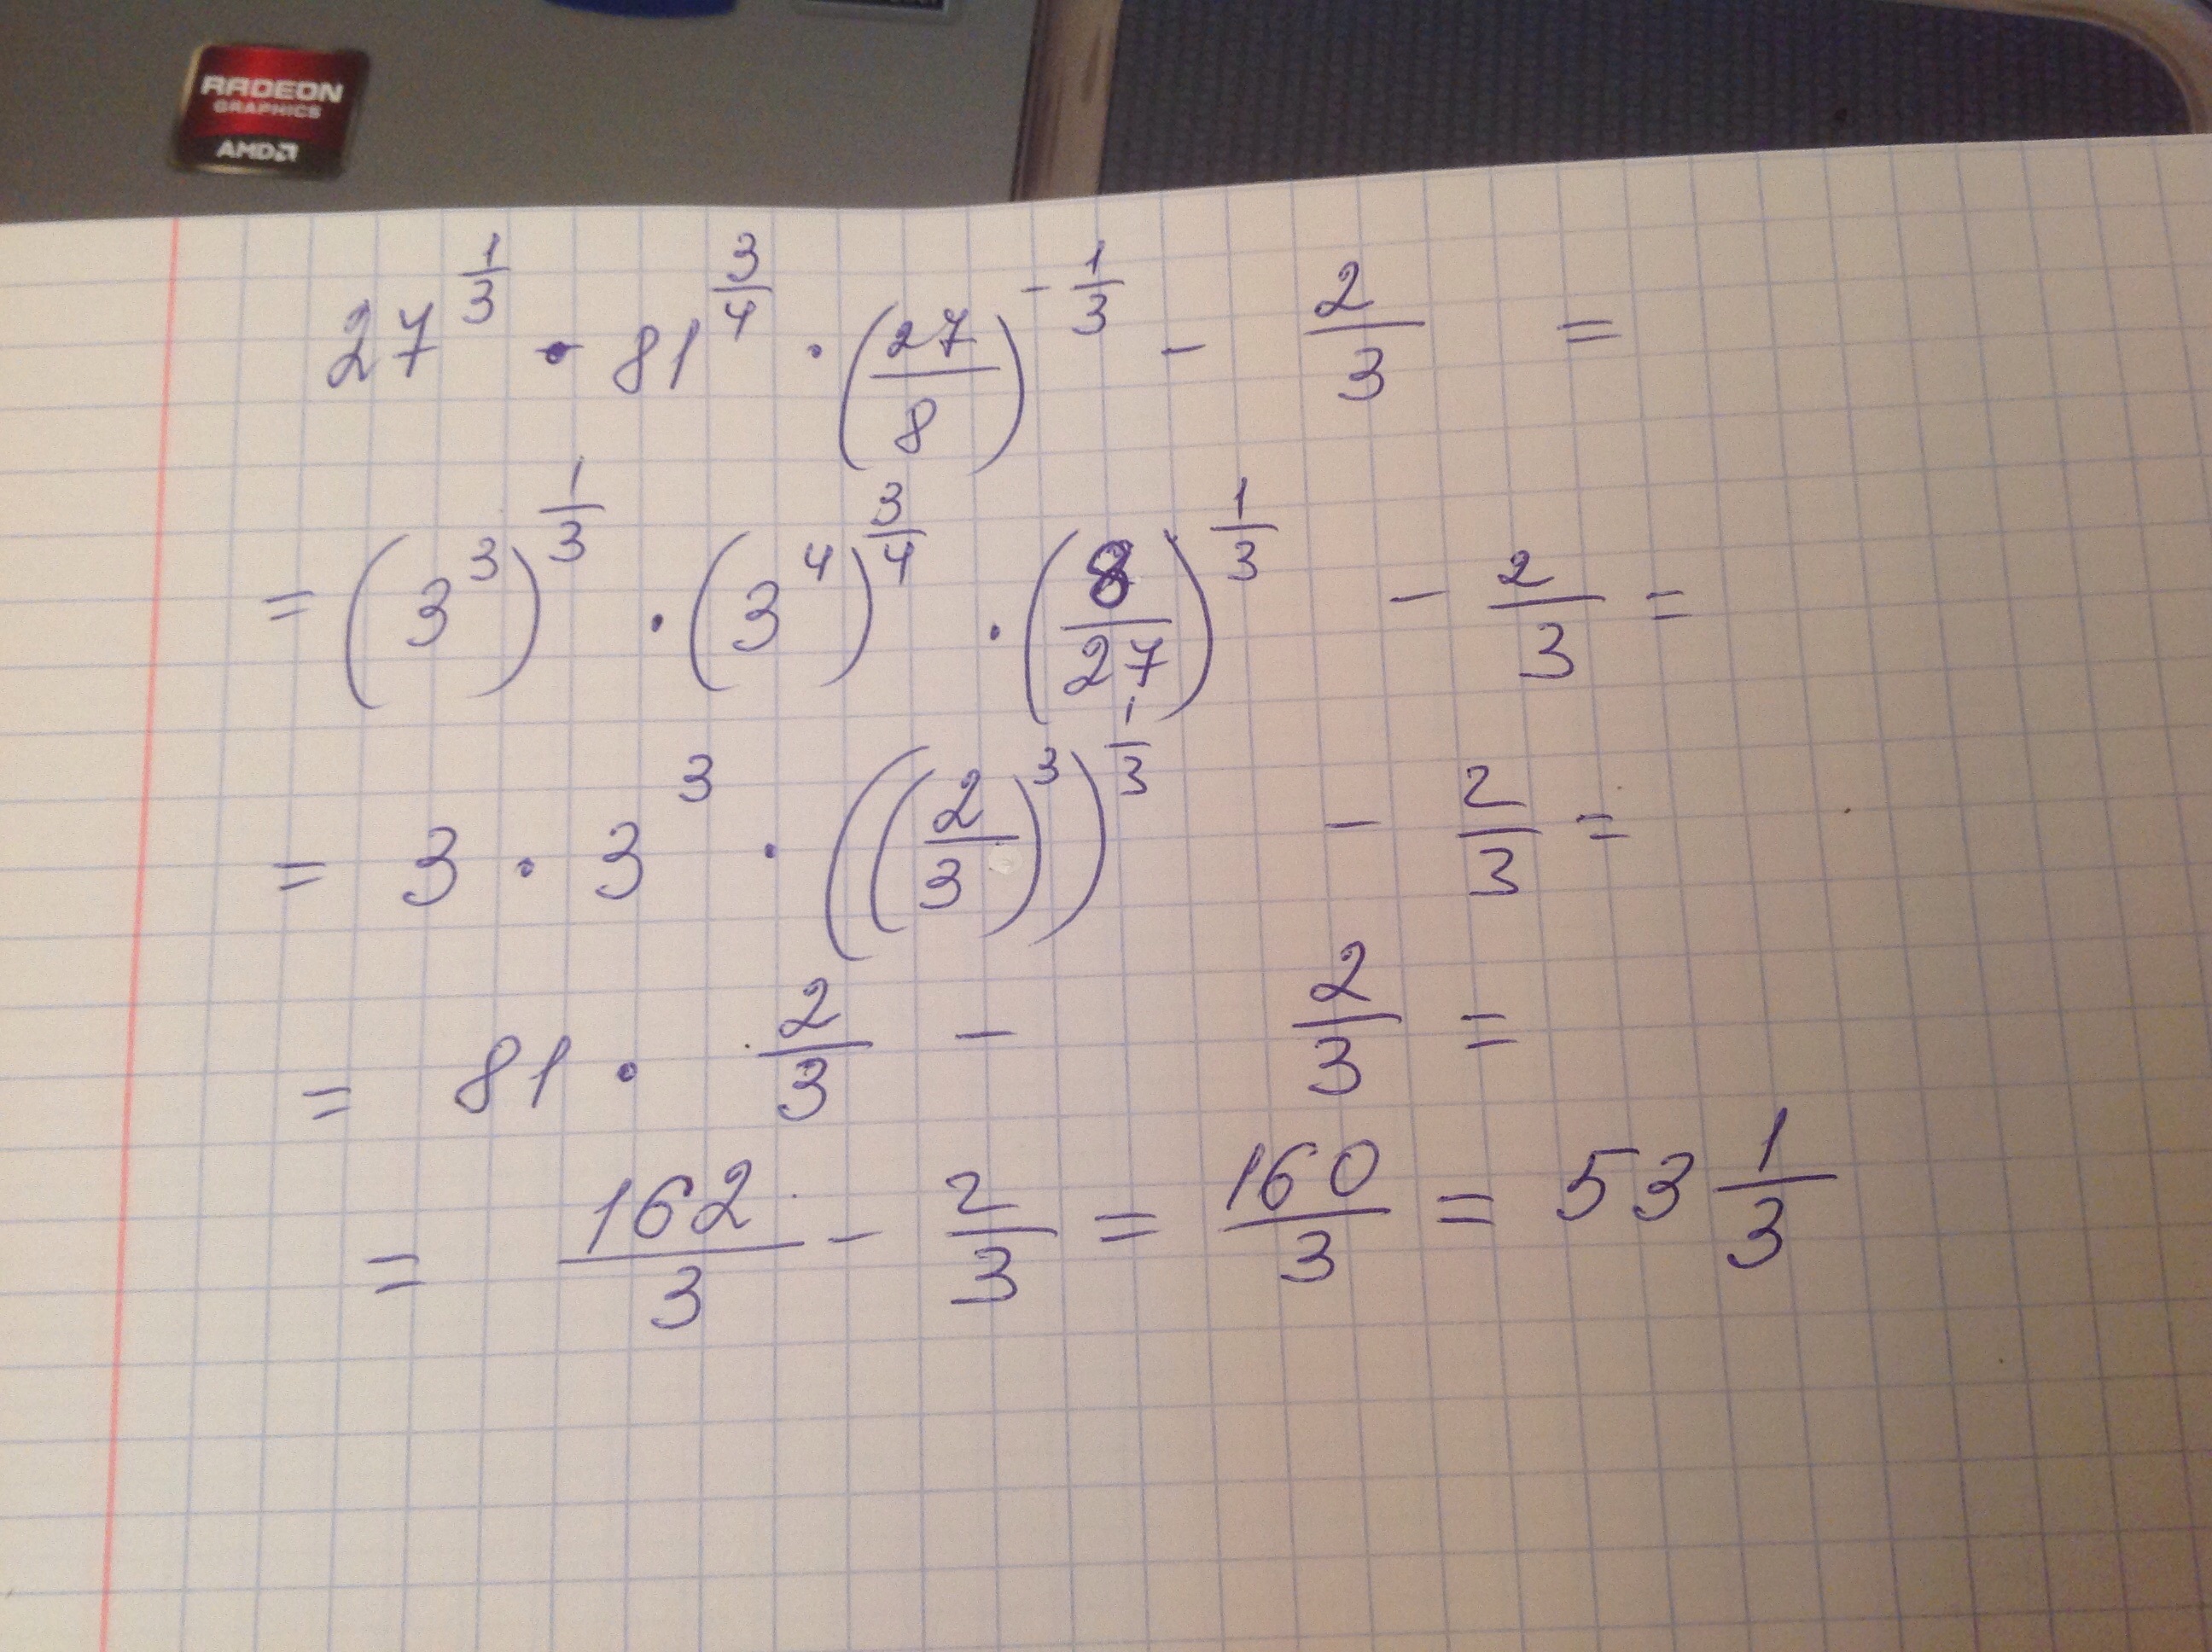 RADEON
GRAPHICS
AMD
27^{1/3} · 81^{3/4} · (27/8)^{-1/3} - 2/3 =
= (3^3)^{1/3} · (3^4)^{3/4} · (8/27)^{1/3} - 2/3 =
= 3 · 3^3 · ((2/3)^3)^{1/3} - 2/3 =
= 81 · 2/3 - 2/3 =
= 162/3 - 2/3 = 160/3 = 53 1/3